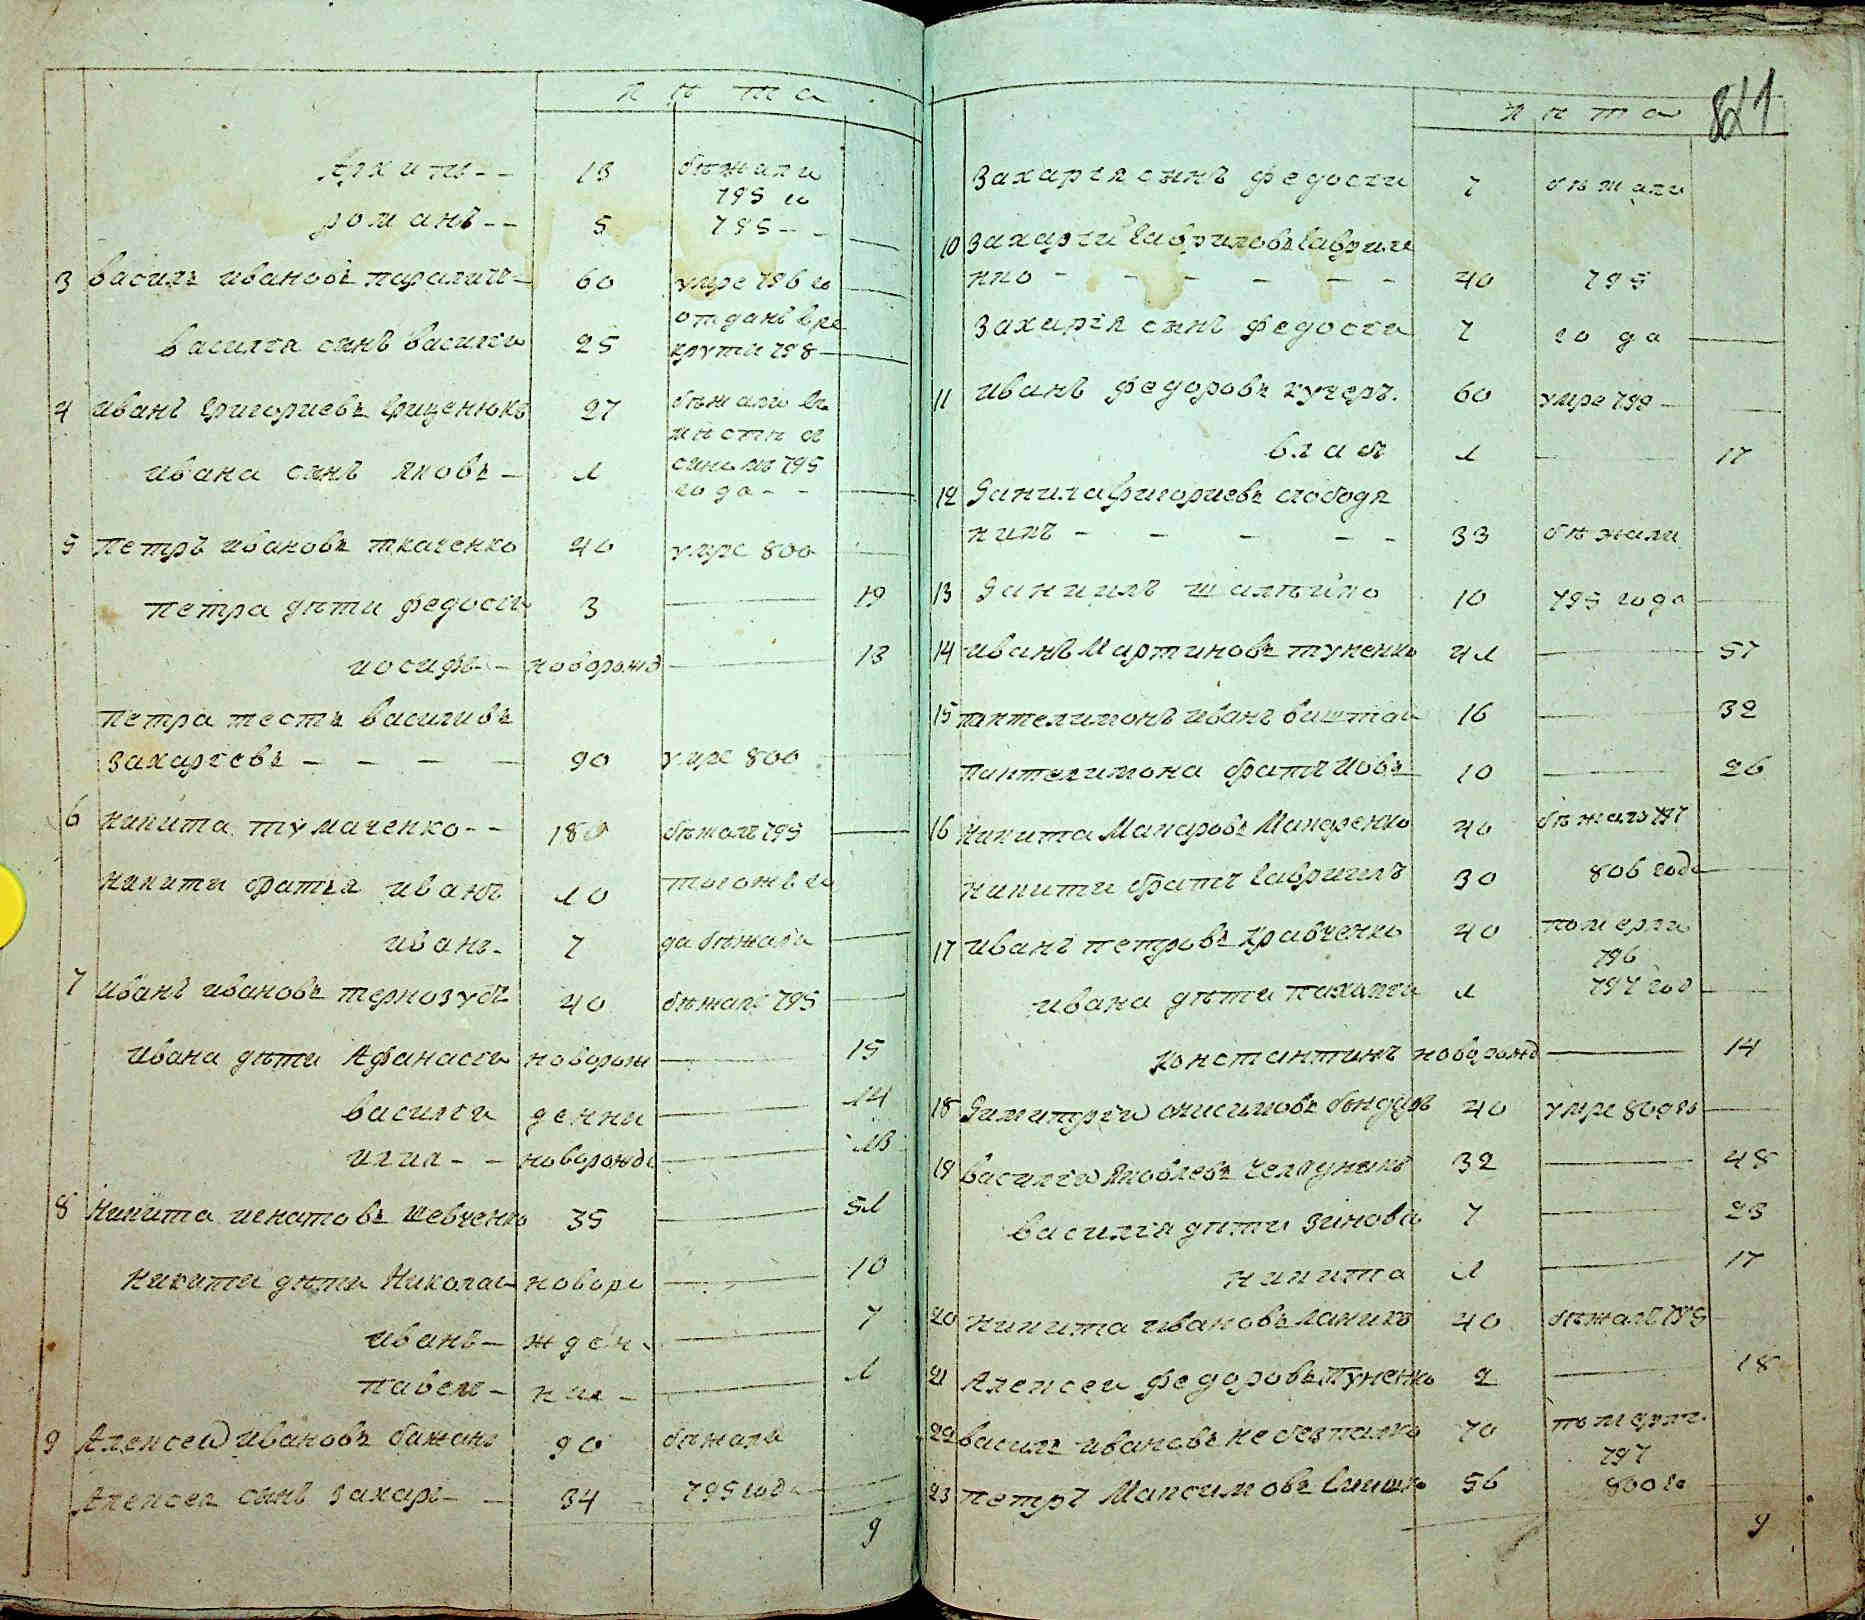 лѣта
Архипъ - - 13 бѣжали
795 го
романъ - - 5 795 - -
3 василь ивановъ паралигъ - 60 умре 796 го
отданъ в ре
василия сынъ василии 25 крути 798
4 иванъ григориевъ гриценюкъ 27 бѣжали
ивана сынъ яковъ - 1 сыномъ 795
года - -
5 петръ ивановъ ткаченко 40 умре 800
петра дѣти федосии 3 19
иосифъ - - новорожд 13
петра тесть василивъ
захариевъ - - - - 90 умре 800
6 никита тумаченко - - 18 бѣжалъ 795
никити братья иванъ 10 тогожъ го
иванъ - 7 да бѣжали
7 иванъ ивановъ тернозубъ 40 бѣжалъ 795
ивана дѣти Афанасии новорож 15
василии денни 14
илия - - новорожде 13
8 никита игнатовъ шевченко 35 51
никити дѣти Николаи новоро 10
иванъ - жден 7
павелъ - ния - 1
9 Алексеи ивановъ бажанъ 90 бѣжали
Алексея сынъ захари - - 34 795 года
9
лѣта 841
Захария сынъ федосии 7 бѣжали
10 Захарии Гавриловъ Гаврили
нко - - - - - - 40 795
Захария сынъ федосии 7 года
11 иванъ федоровъ кучеръ. 60 умре 799
власъ 1 17
12 Данила Григориевъ слободя
никъ - - - - - 33 бѣжали
13 Даниилъ 10 795 года
14 иванъ Мартиновъ туненко 41 57
15 пантелимонъ иванъ 16 32
пантелимона братъ иовъ 10 26
16 никита Макаровъ Макаренко 40 бѣжалъ 797
никити братъ Гаврилъ 30 806 года
17 иванъ петровъ кравченко 40 померли
796
ивана дѣти пахомии 1 797 год
константинъ новорожд 14
18 Димитрии онисимовъ бондаръ 40 умре
19 василии Яковлевъ челядникъ 32 48
василия дѣти зинови 7 23
никита 1 17
20 никита ивановъ 40 бѣжалъ 795
21 Алексеи федоровъ туненко 2 18
22 василь ивановъ 70 померли
797
23 петръ Максимовъ 56 800 го
9